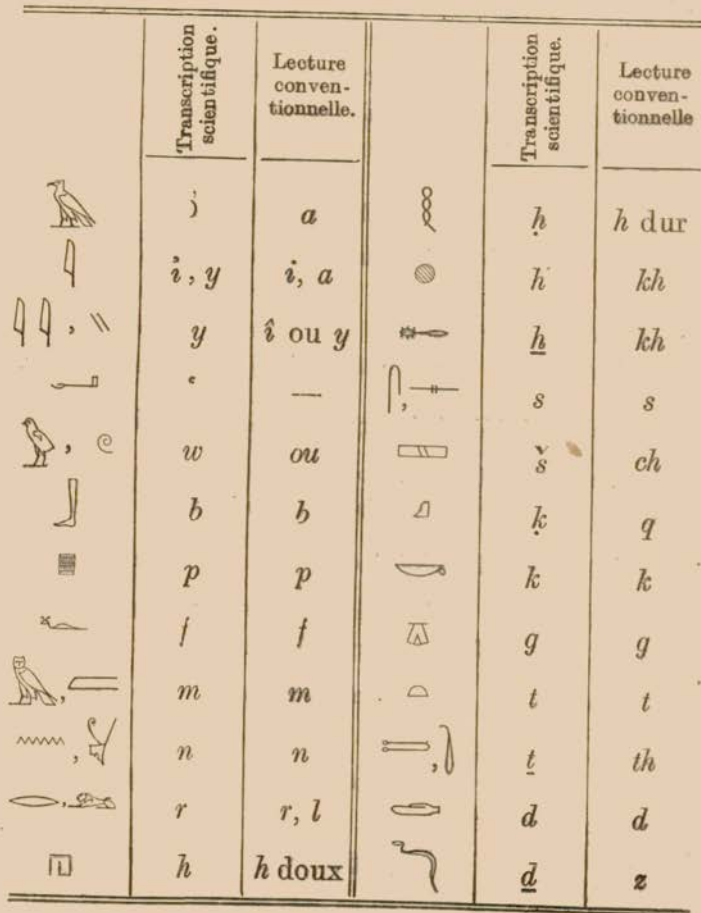 Transcription scientifique. Lecture conventionnelle. Transcription scientifique. Lecture conventionnelle
𓄿 ꜣ a 𓎛 ḥ h dur
𓇋 ỉ, y i, a 𓐍 ḫ kh
𓇋𓇋, 𓏭 y î ou y 𓄡 ẖ kh
𓂝 ꜥ —
𓋴, 𓊃 s s
𓅱, 𓏲 w ou 𓈙 š ch
𓃀 b b 𓈎 ḳ q
𓊪 p p 𓎡 k k
𓆑 f f 𓎼 g g
𓅓, 𓐝 m m 𓏏 t t
𓈖 n n 𓍿 ṯ th
𓂋, 𓃭 r r, l 𓂧 d d
𓉔 h h doux 𓆓 ḏ z